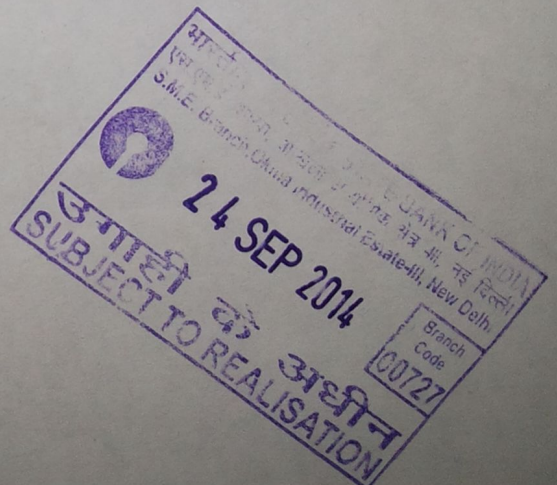 BANK OF INDIA
S.M.E. Branch, Okhla Industrial Estate-III, New Delhi
24 SEP 2014
Branch
Code
C0727
उगाही के अधीन
SUBJECT TO REALISATION